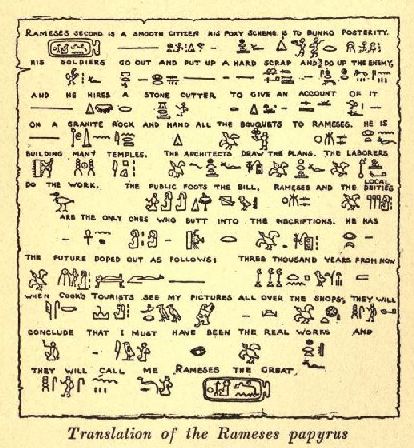 RAMESES SECOND IS A SMOOTH CITIZEN HIS FOXY SCHEME IS TO BUNKO POSTERITY.
HIS SOLDIERS GO OUT AND PUT UP A HARD SCRAP AND DO UP THE ENEMY,
AND HE HIRES A STONE CUTTER TO GIVE AN ACCOUNT OF IT
ON A GRANITE ROCK AND HAND ALL THE BOUQUETS TO RAMESES. HE IS
BUILDING MANY TEMPLES. THE ARCHITECTS DRAW THE PLANS. THE LABORERS
DO THE WORK. THE PUBLIC FOOTS THE BILL, RAMESES AND THE LOCAL DEITIES
ARE THE ONLY ONES WHO BUTT INTO THE INSCRIPTIONS. HE HAS
THE FUTURE DOPED OUT AS FOLLOWS: THREE THOUSAND YEARS FROM NOW
WHEN COOK'S TOURISTS SEE MY PICTURES ALL OVER THE SHOPS, THEY WILL
CONCLUDE THAT I MUST HAVE BEEN THE REAL WORKS AND
THEY WILL CALL ME RAMESES THE GREAT.
Translation of the Rameses papyrus